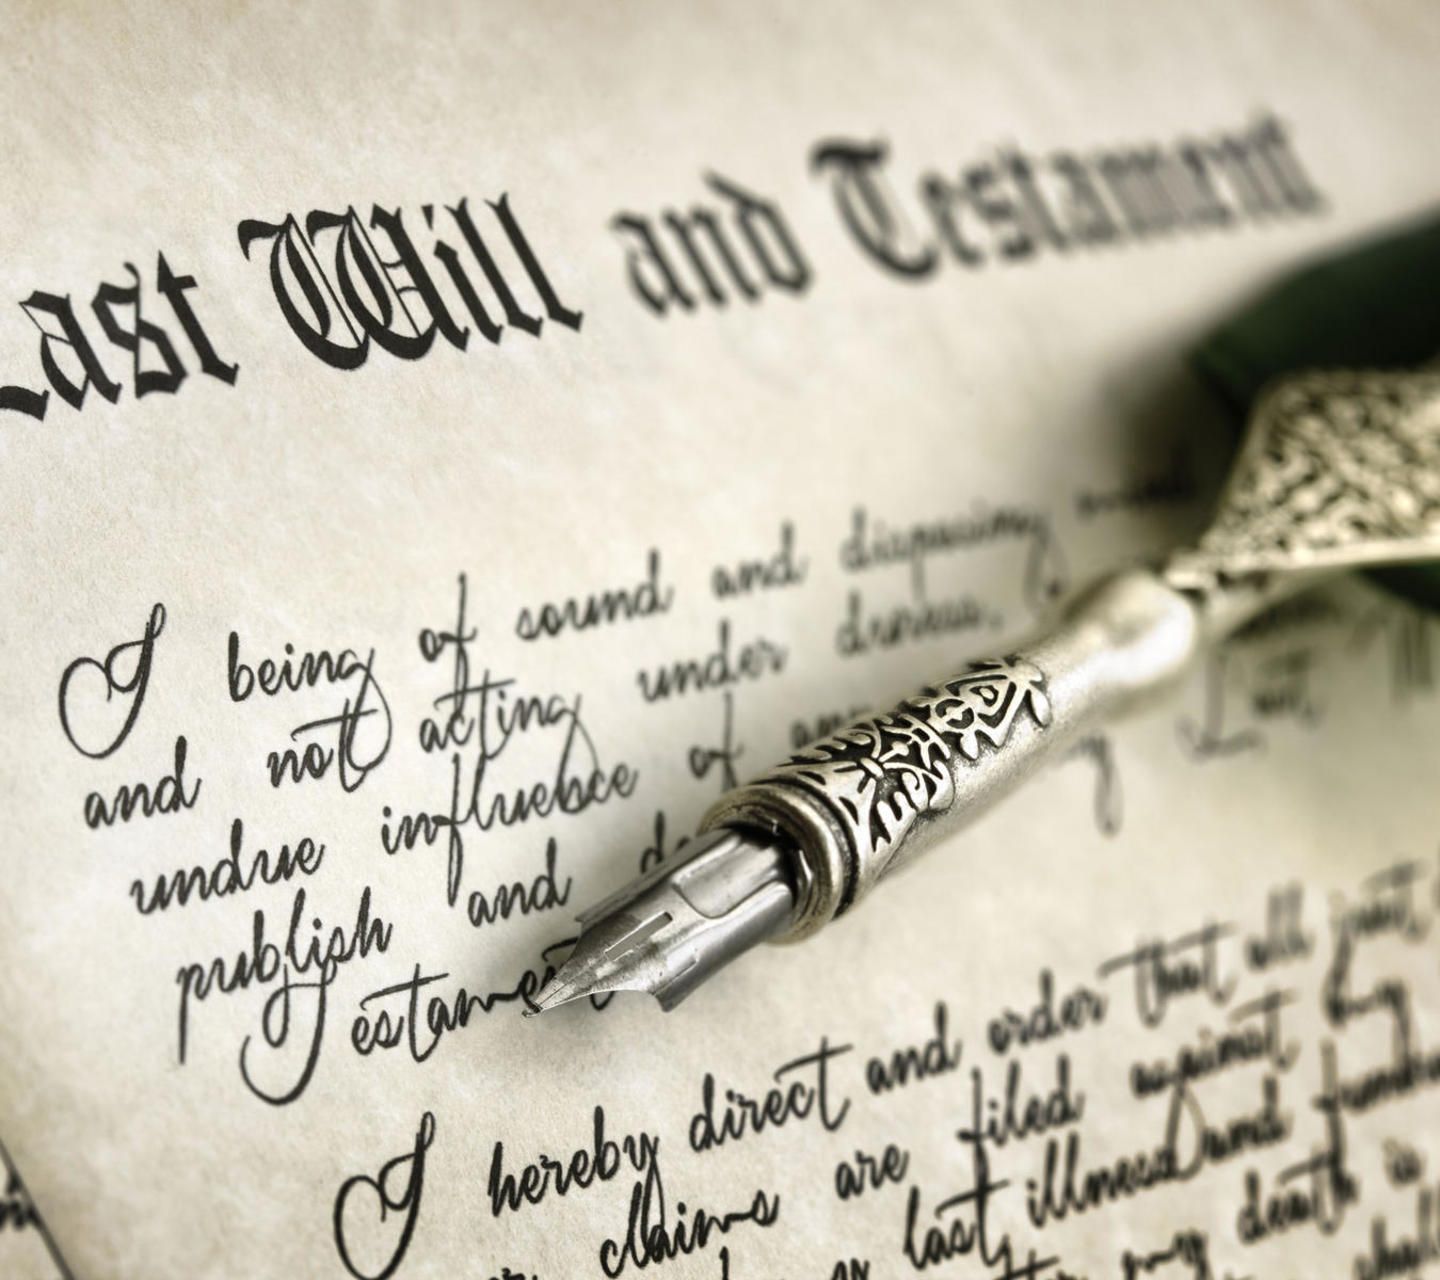 Last Will and Testament
I being of sound and disposing mind
and not acting under duress,
undue influence of any
publish and
estament
Last
I hereby direct and order that all just
claims are filed against my
last illness and
my death is
shall